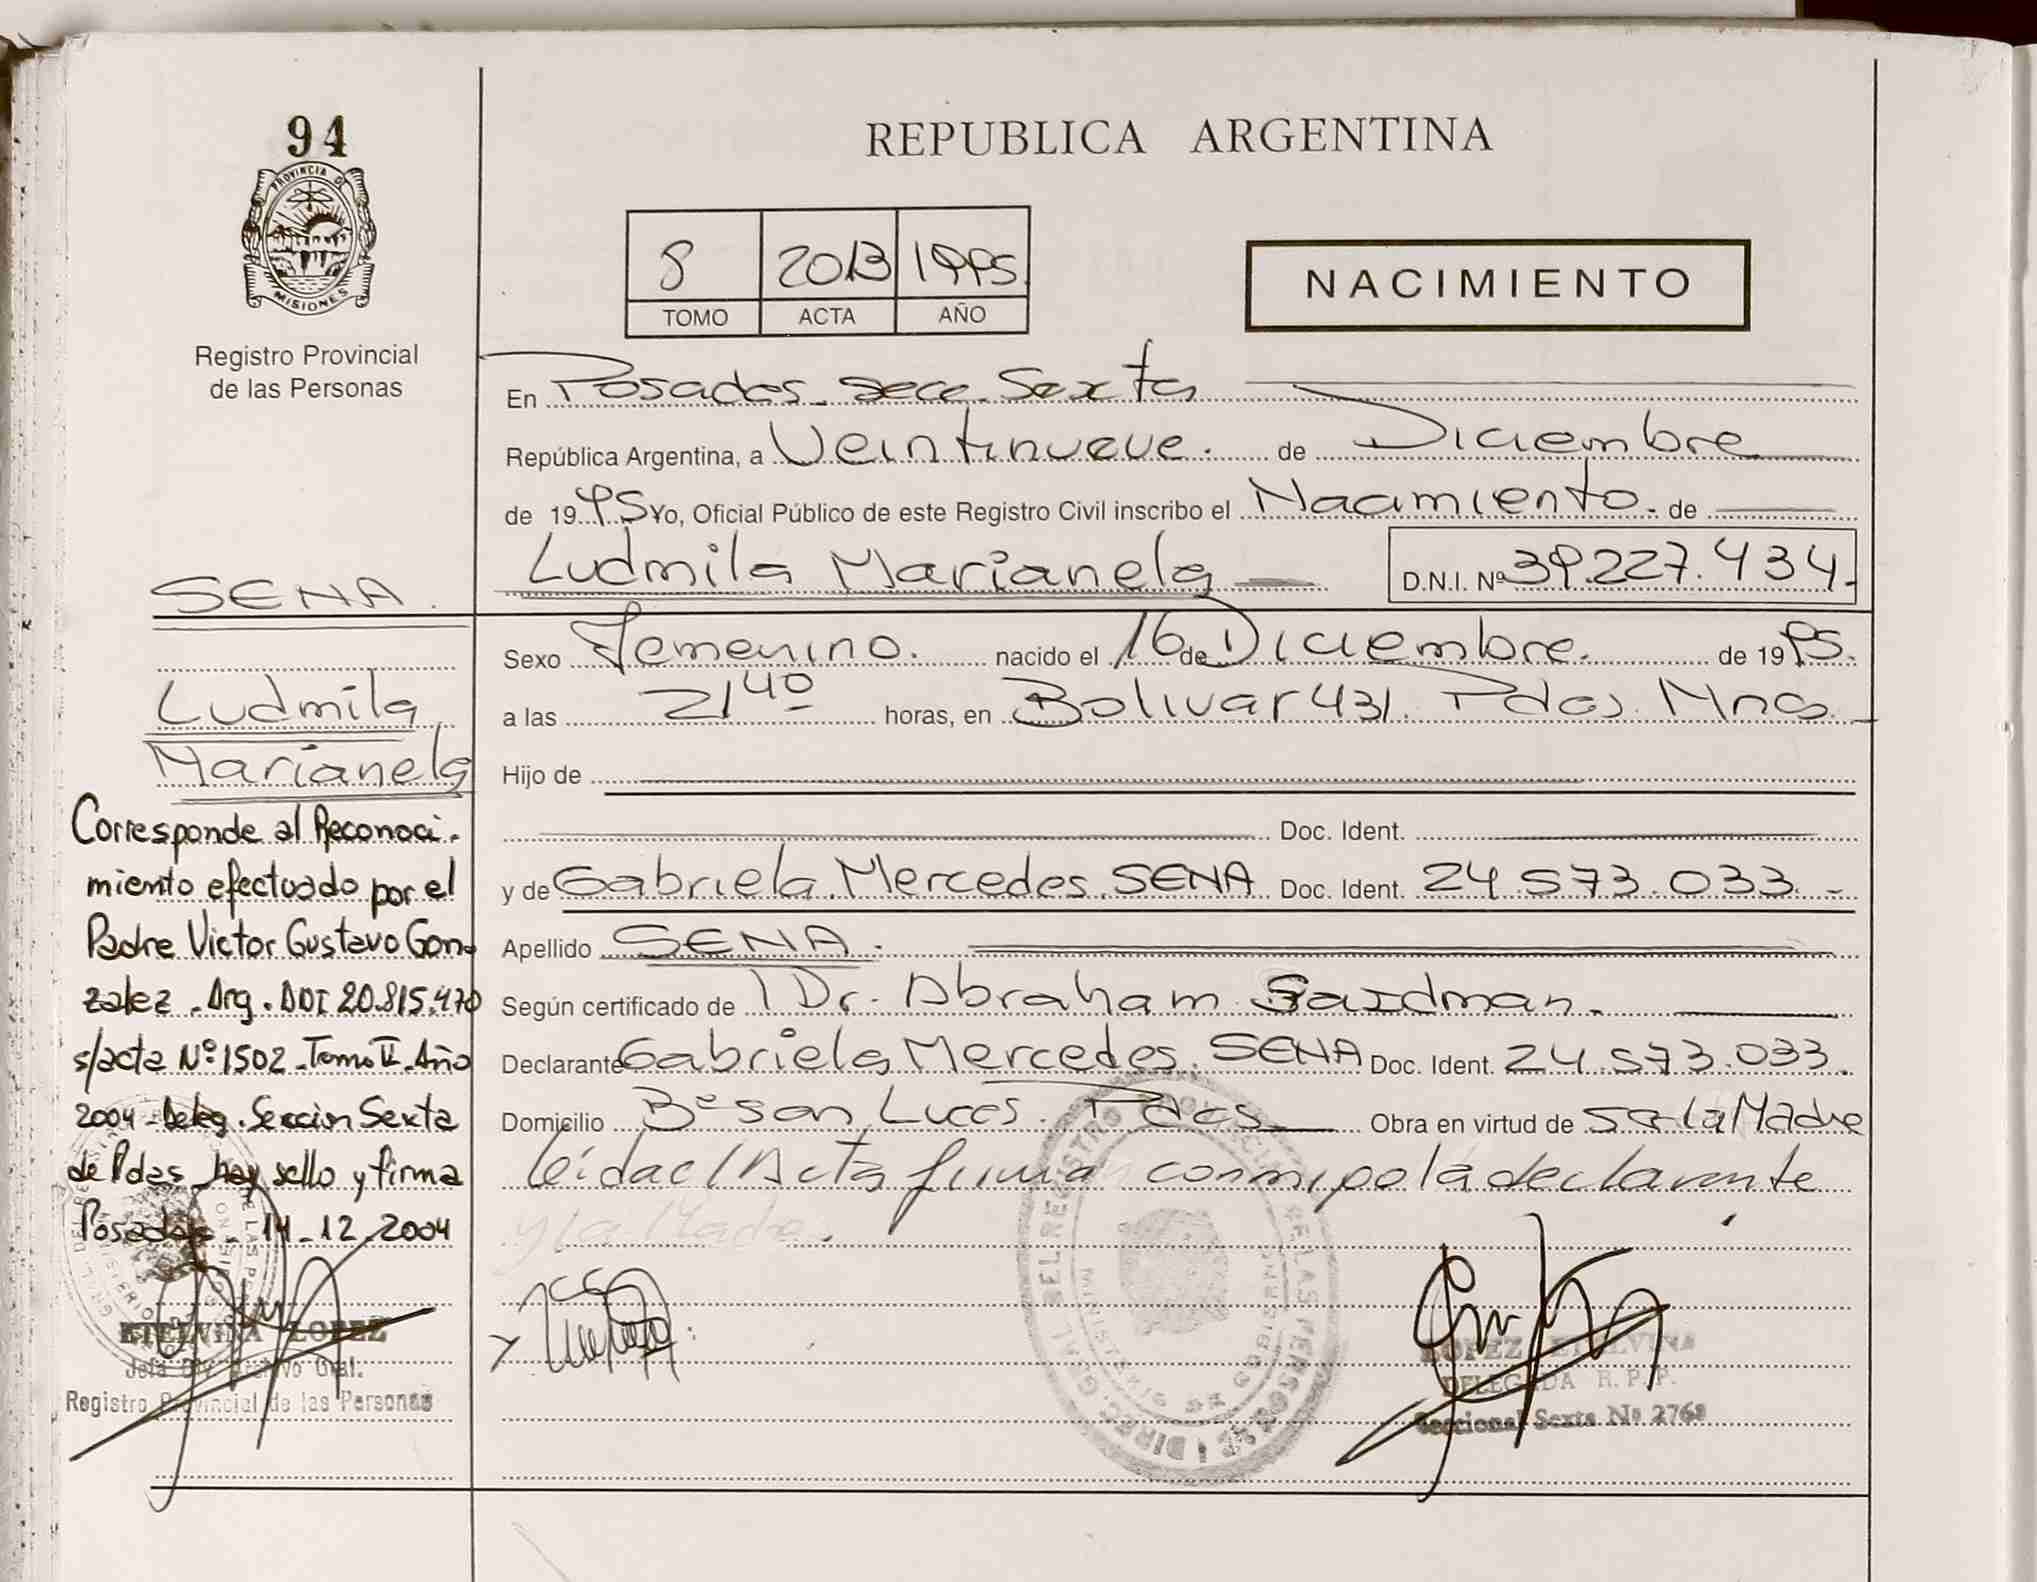 94
PROVINCIA DE
MISIONES
Registro Provincial
de las Personas
REPUBLICA ARGENTINA
8 2013 1995
TOMO ACTA AÑO
NACIMIENTO
En Posadas. Secc. Sexta
República Argentina, a Veintinueve. de Diciembre
de 1995 Yo, Oficial Público de este Registro Civil inscribo el Nacimiento. de
Ludmila Marianela D.N.I. Nº 39.227.434.
Sexo Femenino. nacido el 16 de Diciembre. de 1995.
a las 21 40 horas, en Bolivar 431. Pdas. Mnes.
Hijo de
Doc. Ident.
y de Gabriela Mercedes. SENA Doc. Ident. 24.573.033.-
Apellido SENA.
Según certificado de Dr. Abraham Saidman.
Declarante Gabriela Mercedes. SENA Doc. Ident. 24.573.033.
Domicilio Bº San Lucas. Pdas Obra en virtud de ser la Madre
leida el Acta firma conmigo la declarante
y la Madre.
SENA.
Ludmila
Marianela
Corresponde al Reconoci-
miento efectuado por el
Padre Victor Gustavo Gon-
zalez. Arg. DDI 20.815.470
s/acta Nº 1502 - Tomo II - Año
2004 - Deleg. Seccion Sexta
de Pdas hay sello y firma
Posadas - 14-12-2004
ETELVINA LOPEZ
Jefa Div. Archivo Gral.
Registro Provincial de las Personas
LOPEZ ETELVINA
DELEGADA R. P. P.
Seccional Sexta Nº 2768